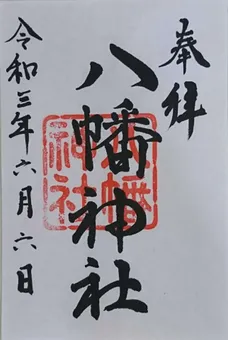 奉拝
八幡神社
八幡神社
令和三年六月六日